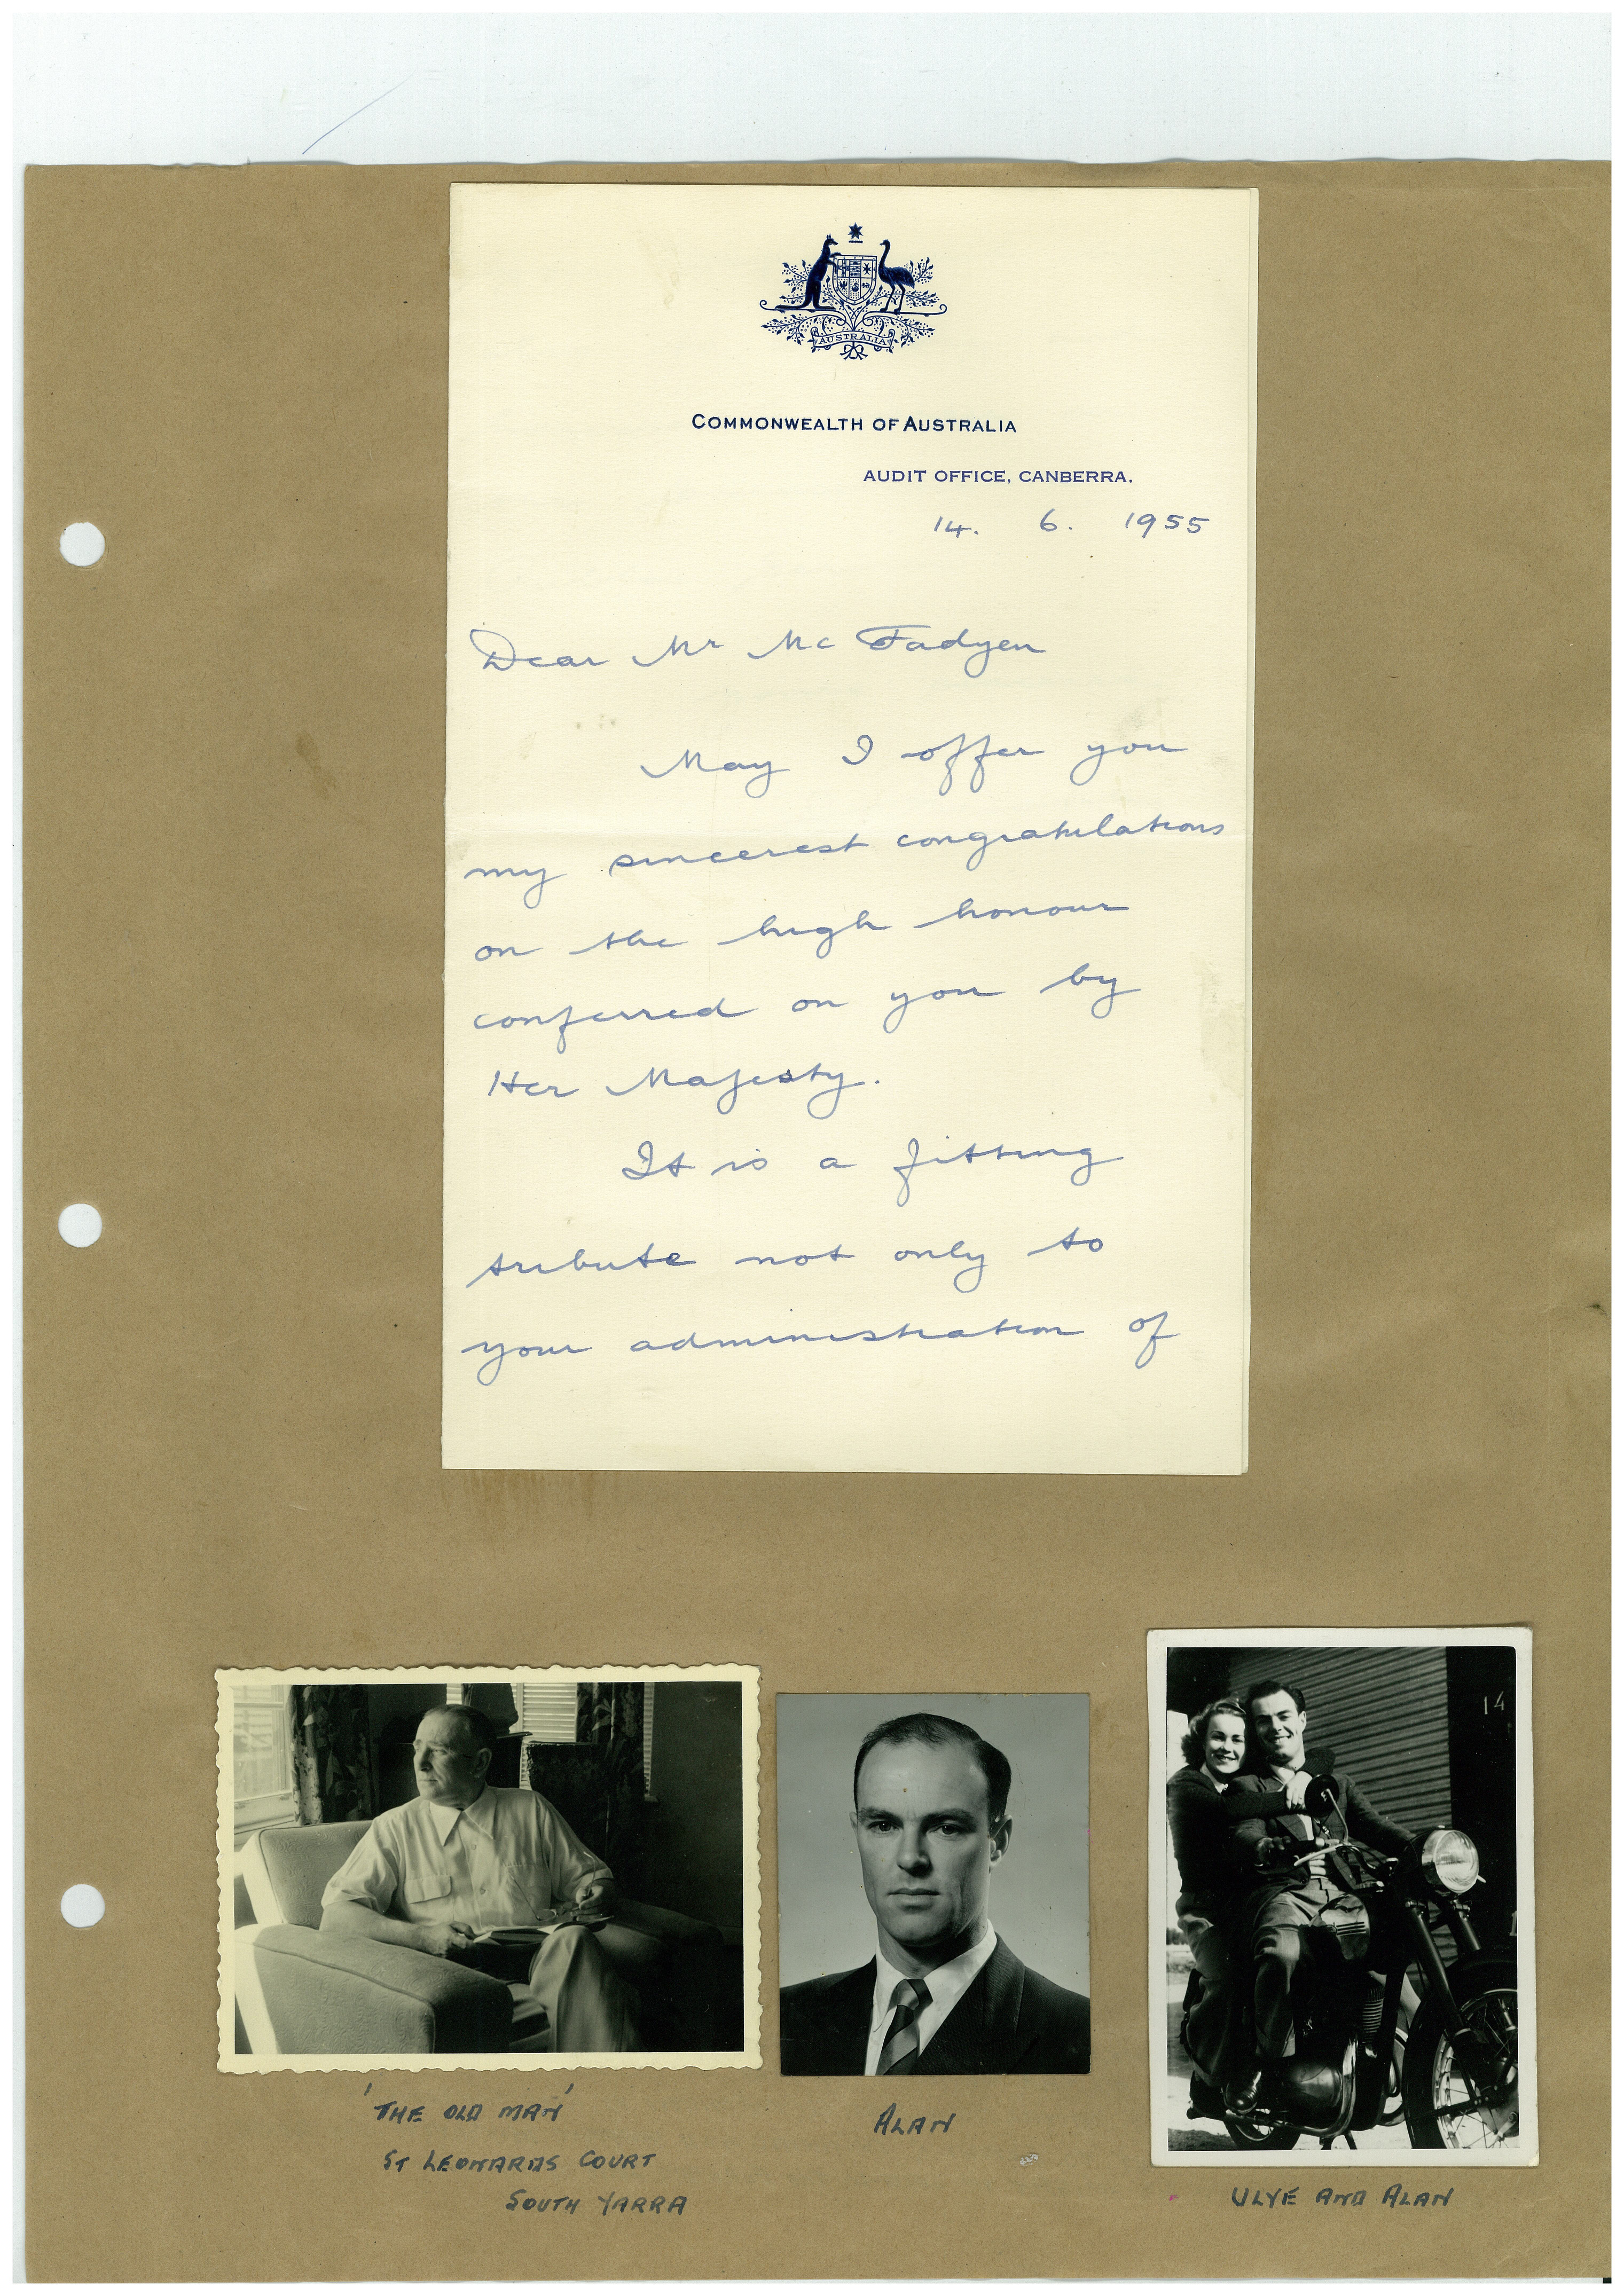 AUSTRALIA
COMMONWEALTH OF AUSTRALIA
AUDIT OFFICE, CANBERRA.
14. 6. 1955
Dear Mr Mc Fadyen
May I offer you
my sincerest congratulations
on the high honour
conferred on you by
Her Majesty.
It is a fitting
tribute not only to
your administration of
14
'THE OLD MAN'
ST LEONARDS COURT
SOUTH YARRA
ALAN
ULYE AND ALAN